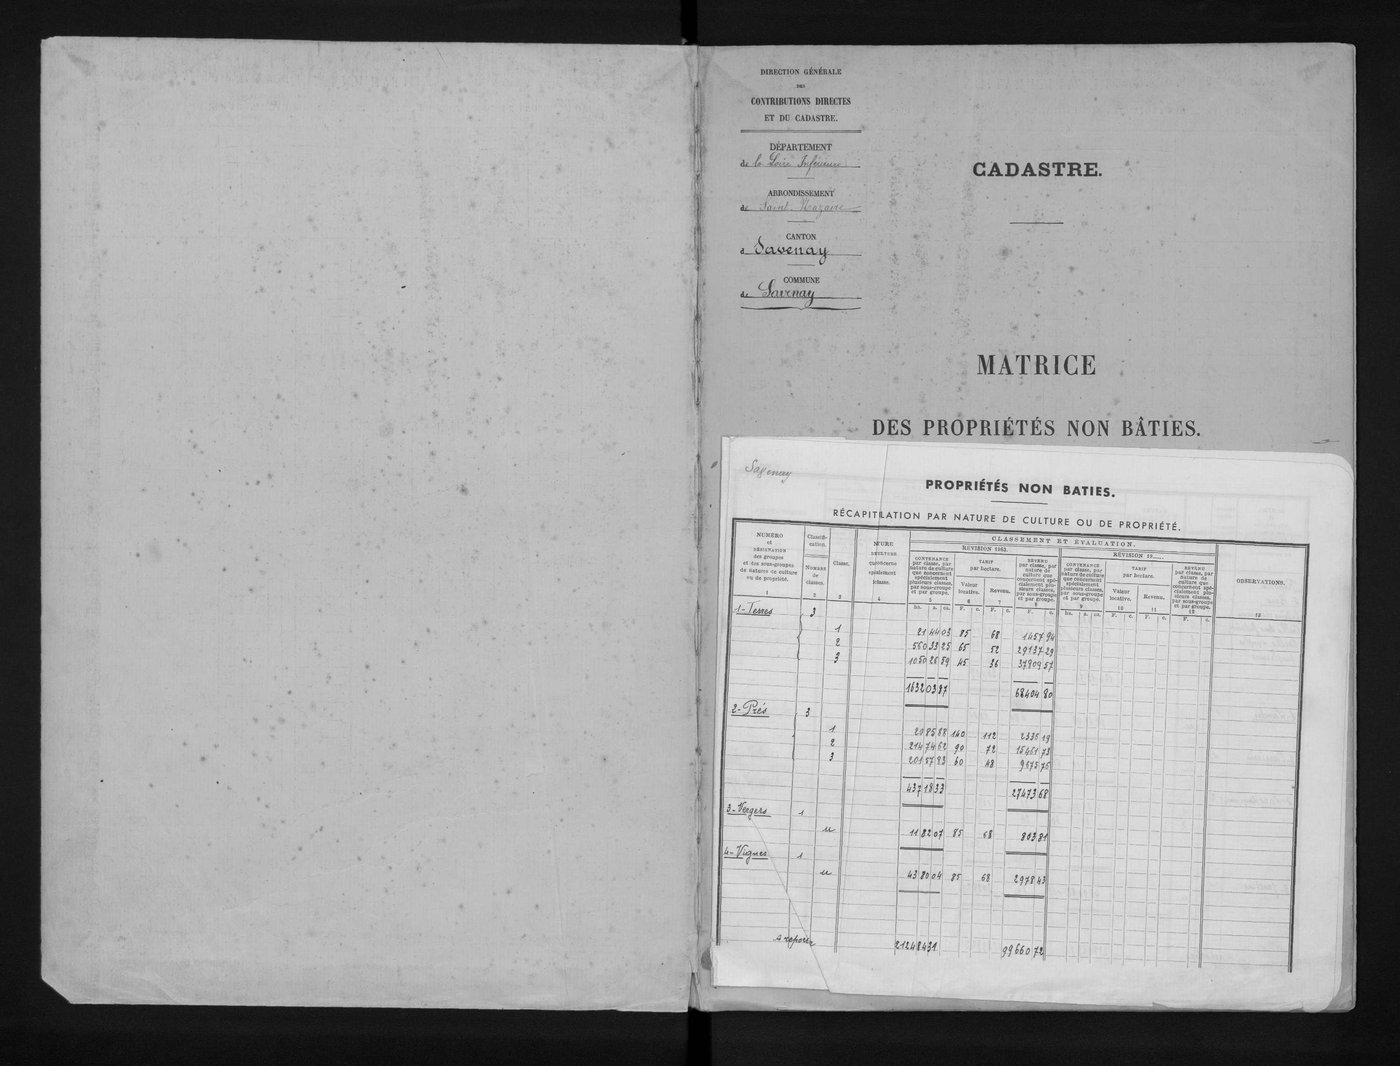 DIRECTION GÉNÉRALE
DES
CONTRIBUTIONS DIRECTES
ET DU CADASTRE.
DÉPARTEMENT
de la Loire Inférieure
ARRONDISSEMENT
de Saint-Nazaire
CANTON
d Savenay
COMMUNE
de Savenay
CADASTRE.
MATRICE
DES PROPRIÉTÉS NON BÂTIES.
Savenay
PROPRIÉTÉS NON BATIES.
RÉCAPITULATION PAR NATURE DE CULTURE OU DE PROPRIÉTÉ.
NUMÉRO et DÉSIGNATION des groupes et des sous-groupes de natures de culture ou de propriété.
Classification.
NOMBRE de classes.
Classe.
CLASSEMENT ET ÉVALUATION.
RÉVISION 1963.
RÉVISION 19
CONTENANCE par classe, par nature de culture que concernent spécialement plusieurs classes, par sous-groupe et par groupe.
TARIF par hectare.
Valeur locative.
Revenu.
REVENU par classe, par nature de culture que concernent spécialement plusieurs classes, par sous-groupe et par groupe.
CONTENANCE par classe, par nature de culture que concernent spécialement plusieurs classes, par sous-groupe et par groupe.
TARIF par hectare.
Valeur locative.
Revenu.
REVENU par classe, par nature de culture que concernent spécialement plusieurs classes, par sous-groupe et par groupe.
OBSERVATIONS.
1 2 3 4 5 6 7 8 9 10 11 12 13
ha. a. ca. F. c. F. c. F. c. ha. a. ca. F. c. F. c. F. c.
1- Terres 3
1 21 44 03 85 68 1457 94
2 560 33 25 65 52 29137 29
3 1050 26 59 45 36 37809 57
1632 03 87 68404 80
2- Prés 3
1 20 85 88 140 112 2336 19
2 214 74 62 90 72 15461 73
3 201 57 83 60 48 9675 76
437 18 33 27473 68
3- Vergers 1
u 11 82 07 85 68 803 81
4- Vignes 1
u 43 80 04 85 68 2978 43
A reporter 2124 84 31 99660 72